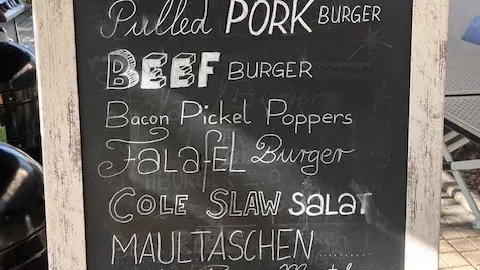 Pulled PORK BURGER
BEEF BURGER ..........
Bacon Pickel Poppers
Falafel Burger
COLE SLAW SALAT
MAULTASCHEN ..........